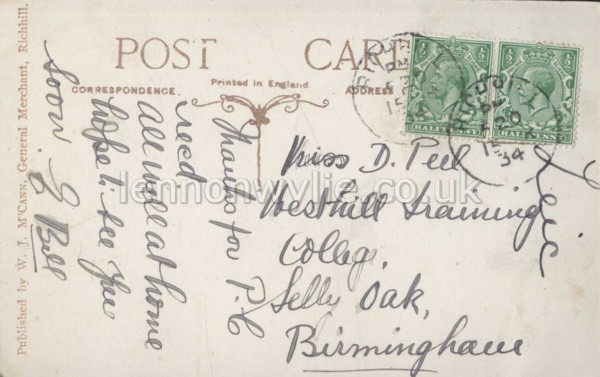 POST CARD
CORRESPONDENCE
Printed in England.
ADDRESS
HALFPENNY
HALFPENNY
RICHHILL
34
Thanks for P.C
recd.
all well at home
hope to see you
soon. E Bell
Miss D. Peel
Westhill Training
College,
Selly Oak,
Birmingham
Published by W. J. McCann, General Merchant, Richhill.
lennonwylie.co.uk